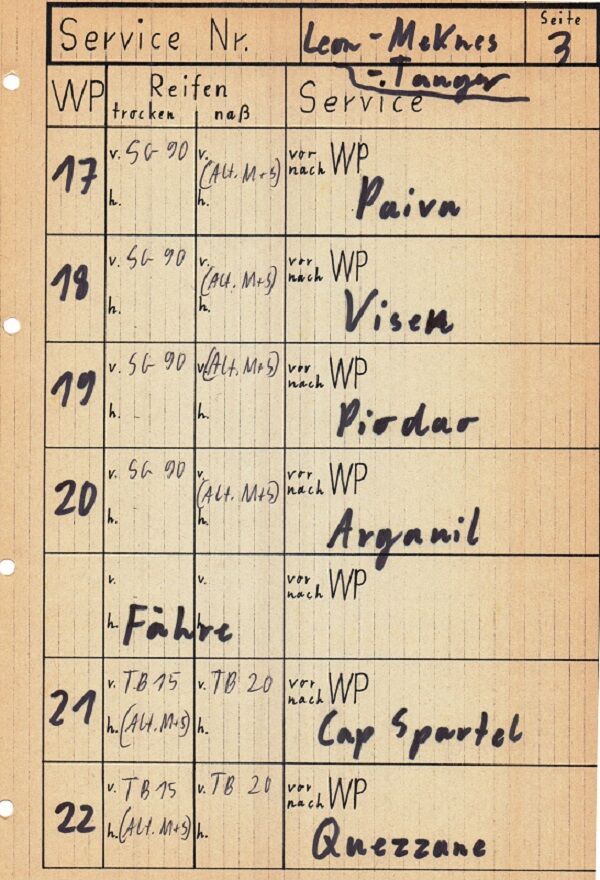 Service Nr. Leon - Meknes Seite 3
- Tanger
WP Reifen Service
trocken naß
17 v. SG 90 v. (Alt. M+S) vor nach WP
h. h. Paiva
18 v. SG 90 v. (Alt. M+S) vor nach WP
h. h. Viseu
19 v. SG 90 v. (Alt. M+S) vor nach WP
h. h. Piodao
20 v. SG 90 v. (Alt. M+S) vor nach WP
h. h. Arganil
v. v. vor nach WP
h. h. Fähre
21 v. TB 15 v. TB 20 vor nach WP
h. (Alt. M+S) h. Cap Spartel
22 v. TB 15 v. TB 20 vor nach WP
h. (Alt. M+S) h. Quezzane